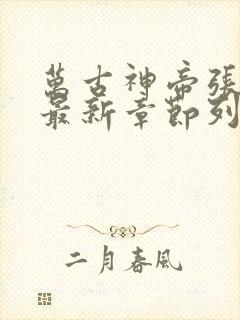 萬古神帝張
最新章節列
二月春風